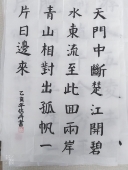 天門中斷楚江開碧
水東流至此回兩岸
青山相對出孤帆一
片日邊來